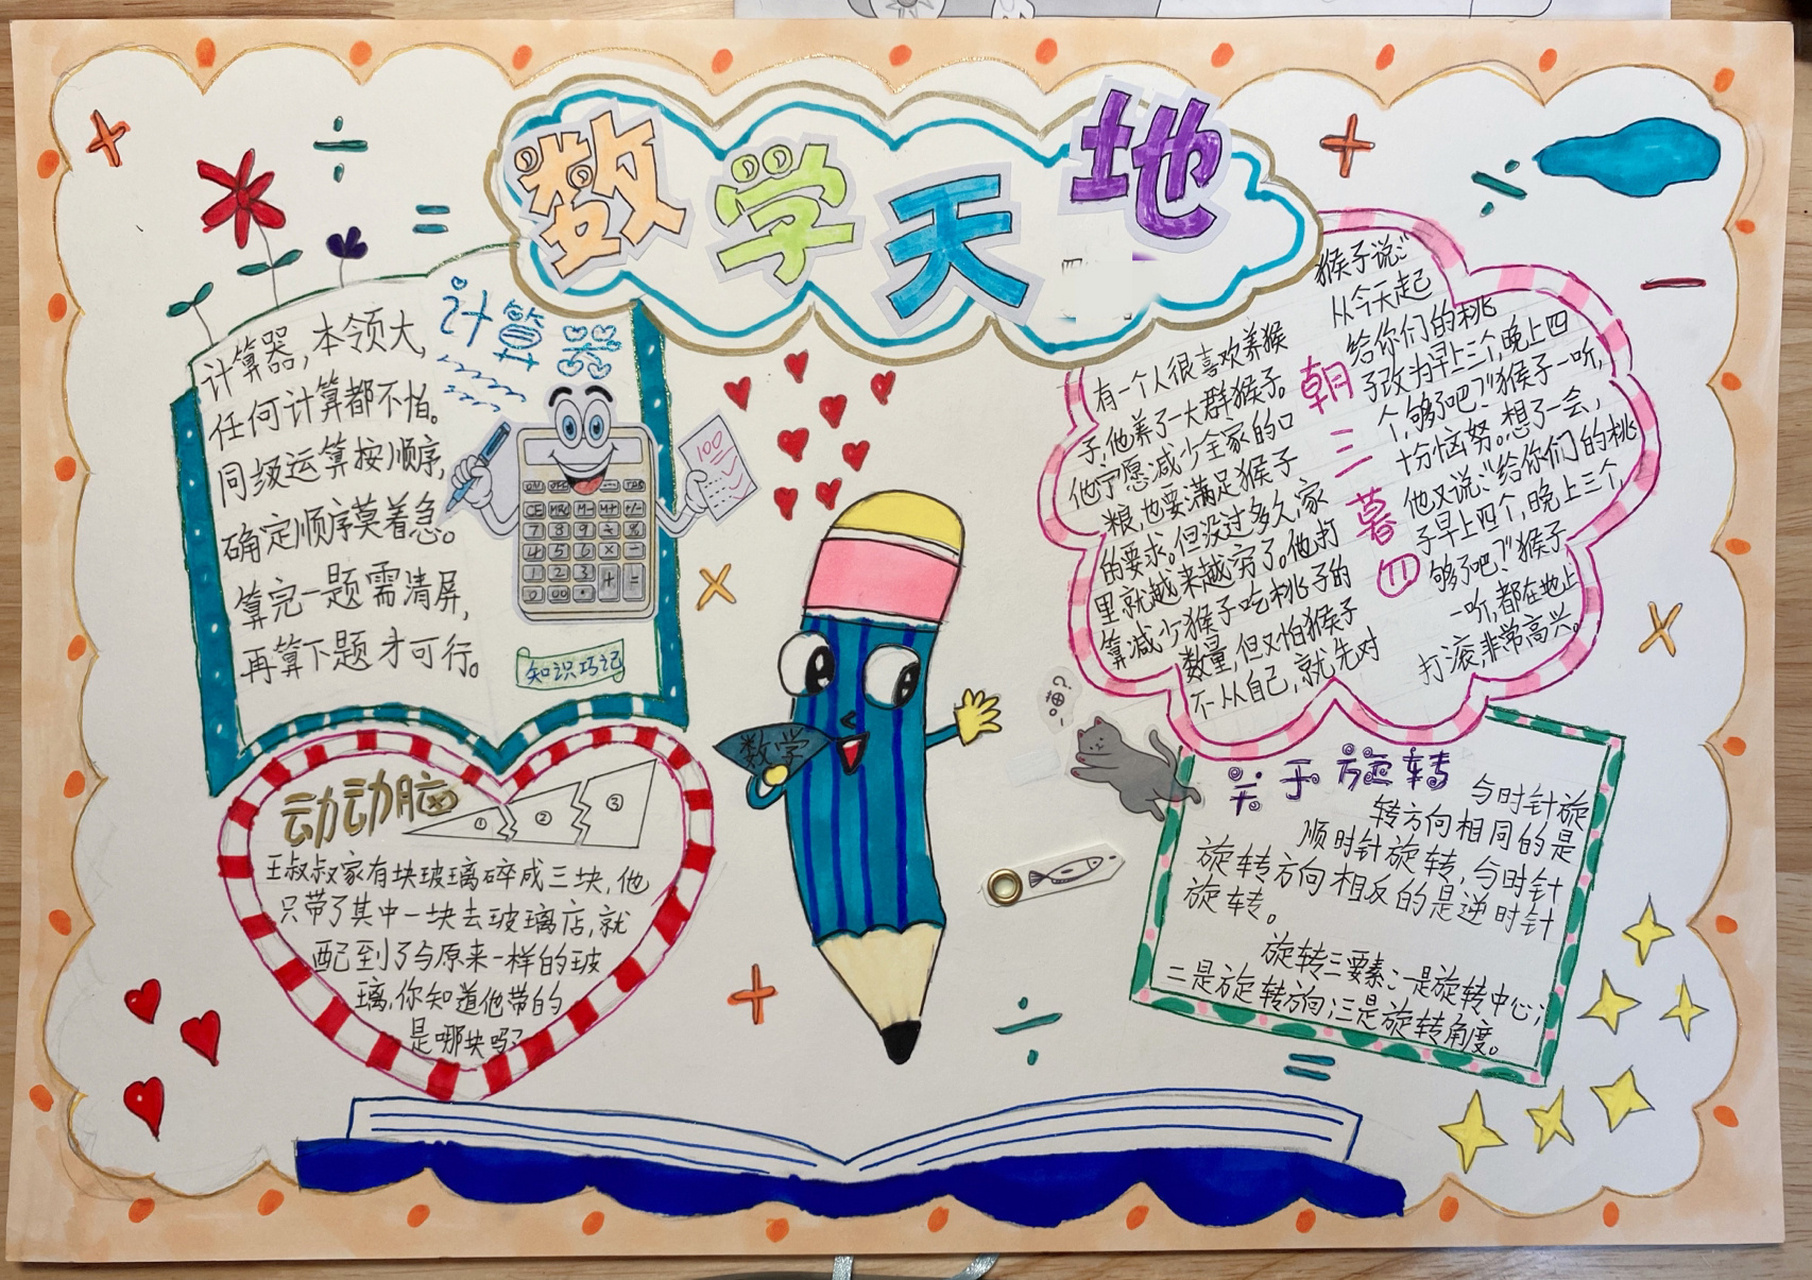 数学天地
计算器
计算器，本领大，
任何计算都不怕。
同级运算按顺序，
确定顺序莫着急。
算完一题需清屏，
再算下题才可行。
知识巧记
100
ON OFF
CE MRC M- M+ +/-
7 8 9 ÷ %
4 5 6 × -
1 2 3 + =
0 00 ·
动动脑
① ② ③
王叔叔家有块玻璃碎成三块，他
只带了其中一块去玻璃店，就
配到了与原来一样的玻
璃，你知道他带的
是哪块吗？
数学
朝三暮四
有一个人很喜欢养猴
子，他养了一大群猴子。
他宁愿减少全家的口
粮，也要满足猴子
的要求。但没过多久，家
里就越来越穷了。他打
算减少猴子吃桃子的
数量，但又怕猴子
不从自己，就先对
猴子说：“
从今天起
给你们的桃
子改为早上三个，晚上四
个，够了吧？”猴子一听，
十分恼努。想了一会，
他又说：“给你们的桃
子早上四个，晚上三个，
够了吧？”猴子
一听，都在地上
打滚，非常高兴。
关于旋转
与时针旋
转方向相同的是
顺时针旋转，与时针
旋转方向相反的是逆时针
旋转。
旋转三要素：一是旋转中心；
二是旋转方向；三是旋转角度。